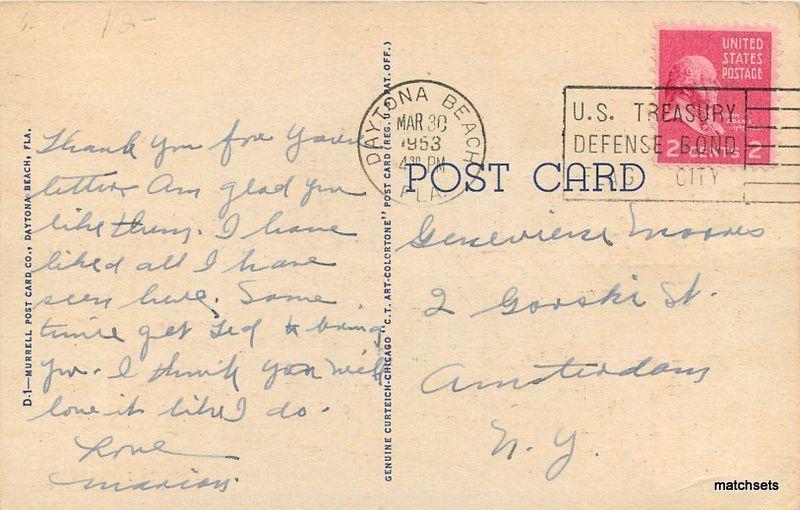 Thank you for your
letter. Am glad you
like them. I have
liked all I have
seen here. Some
time get Ted to bring
you. I think you will
love it like I do.
Love
Marion
D-1—MURRELL POST CARD CO., DAYTONA BEACH, FLA.
GENUINE CURTEICH-CHICAGO "C.T. ART-COLORTONE" POST CARD (REG. U.S. PAT. OFF.)
DAYTONA BEACH
MAR 30
1953
4:30 PM
FLA.
UNITED
STATES
POSTAGE
2 CENTS 2
U.S. TREASURY
DEFENSE BOND
CITY
POST CARD
Genevieve
2 Gorski St.
Amsterdam
N.Y.
matchsets